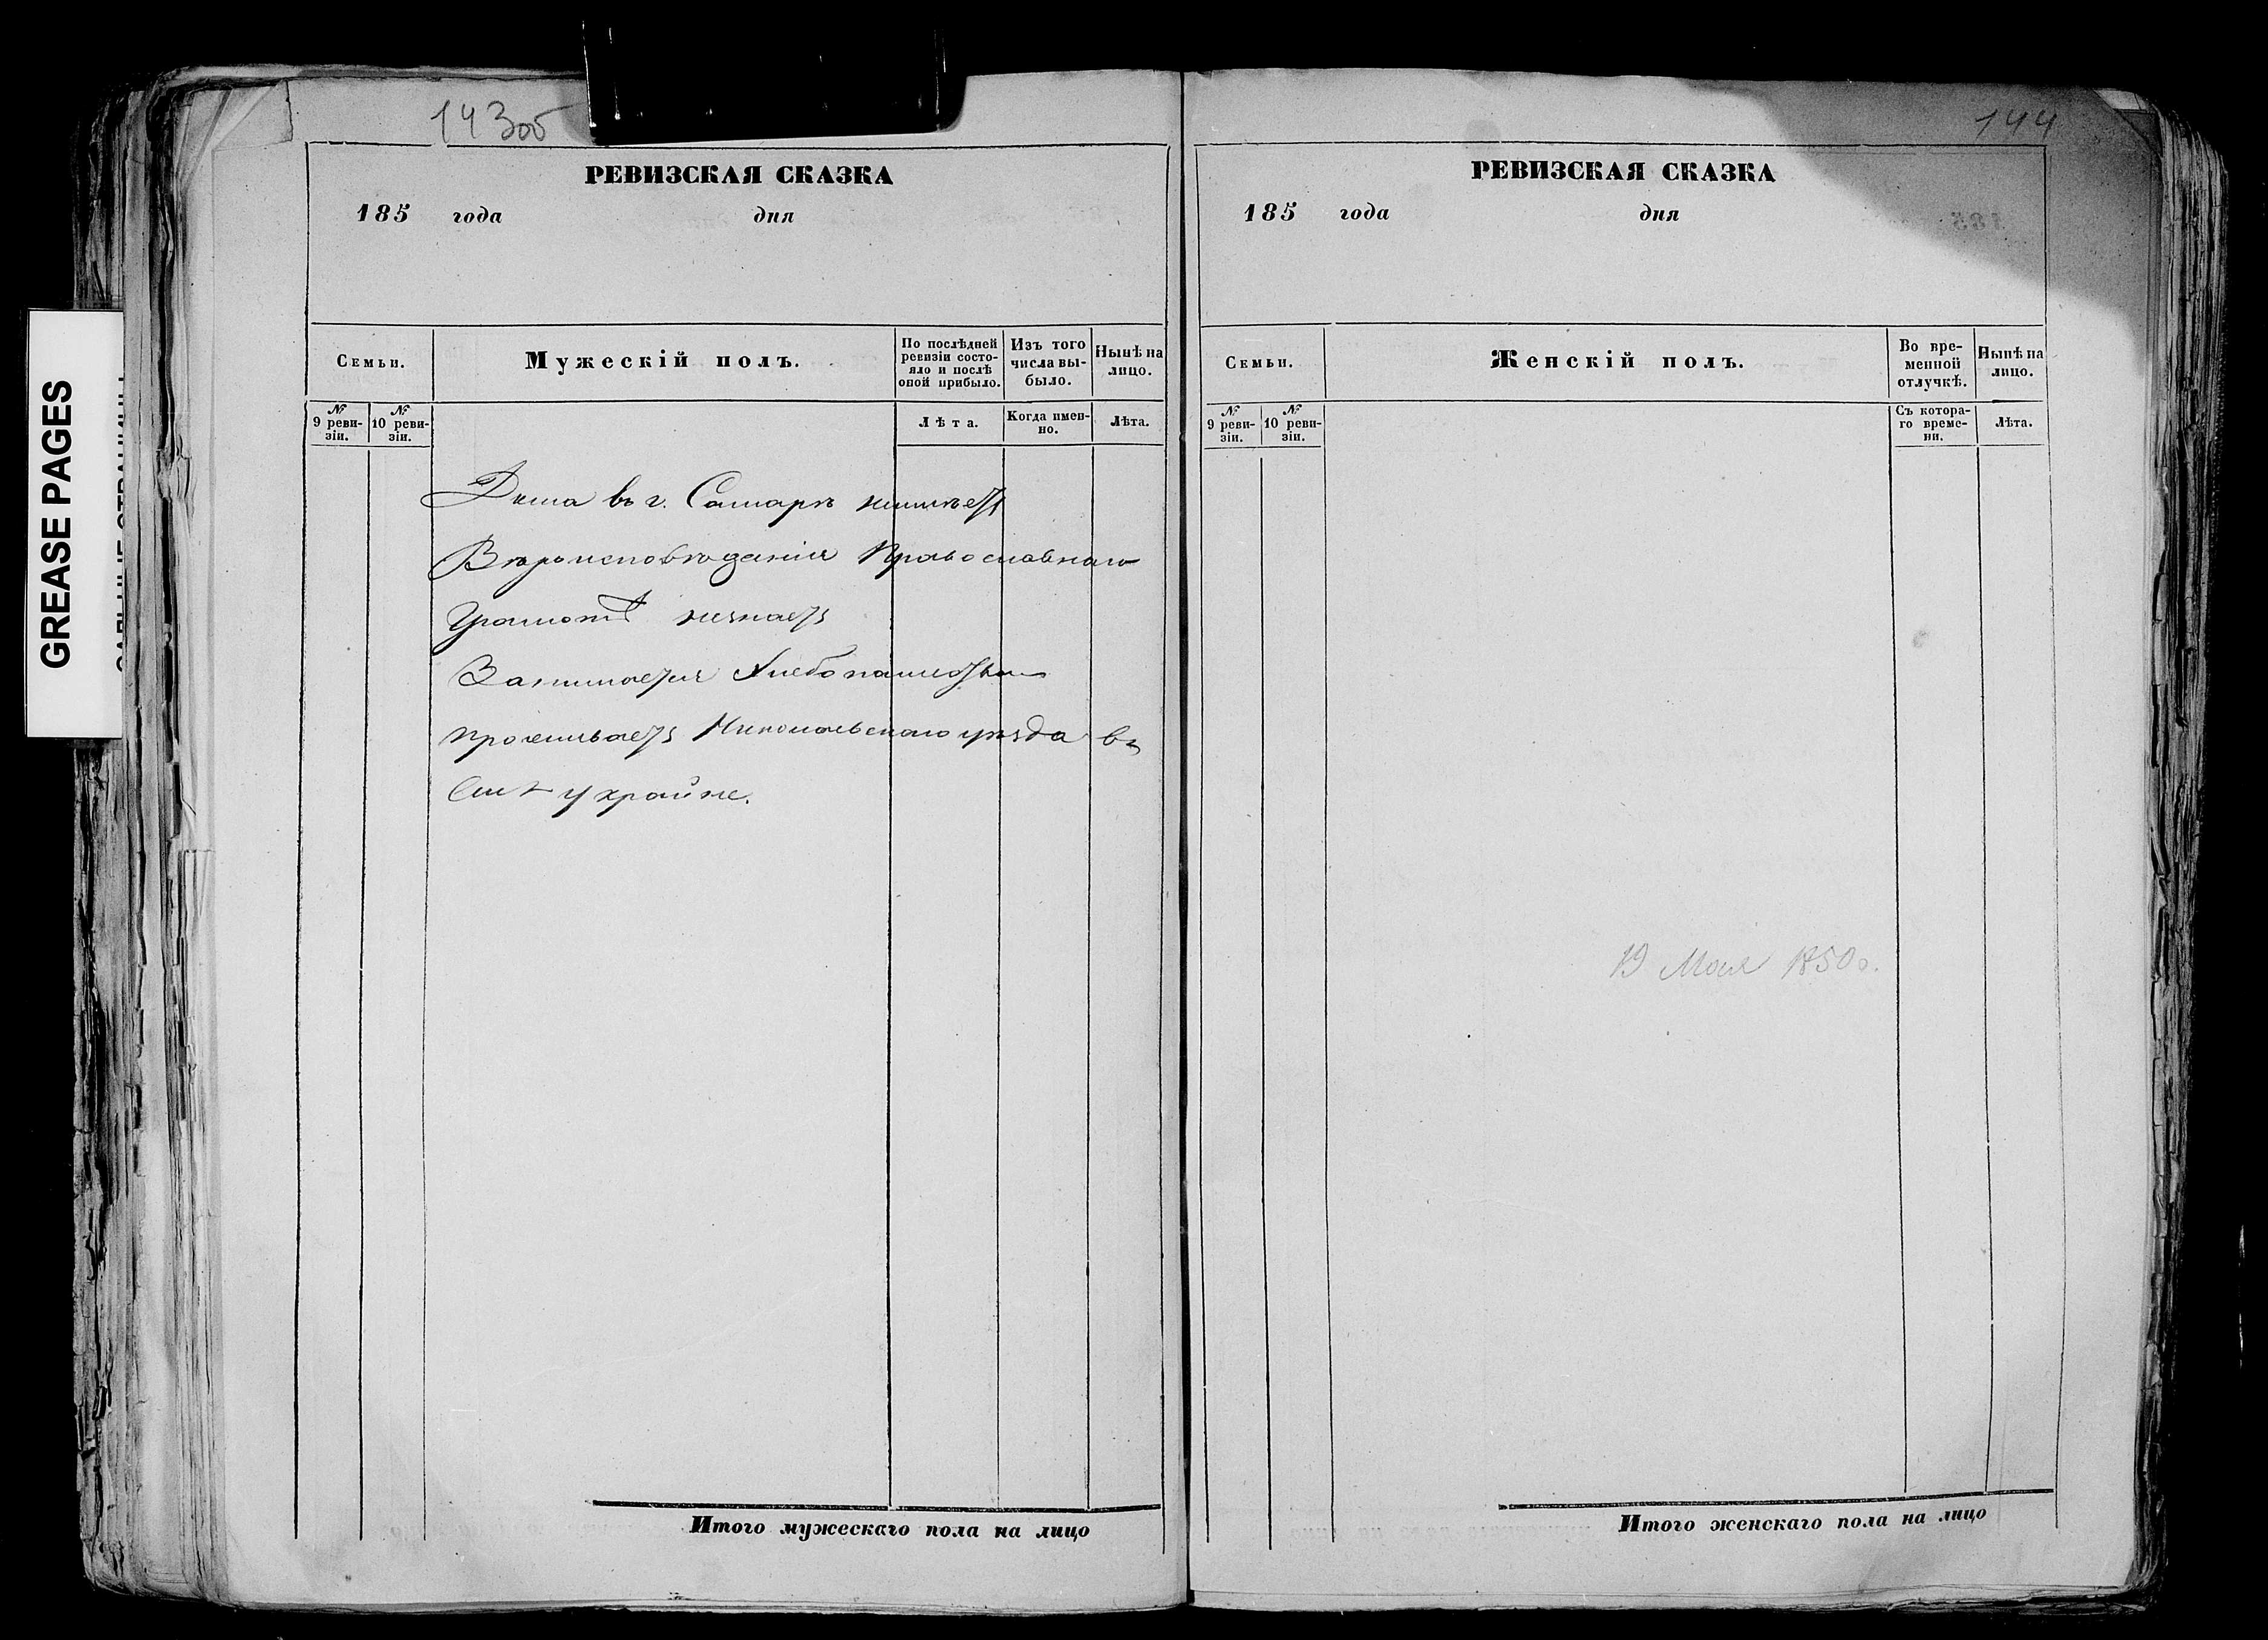 GREASE PAGES
143об
РЕВИЗСКАЯ СКАЗКА
185 года дня
Семьи.
Мужескій полъ.
По послѣдней ревизіи состояло и послѣ оной прибыло.
Изъ того числа выбыло.
Нынѣ на лицо.
№ 9 ревизіи.
№ 10 ревизіи.
Лѣта.
Когда именно.
Лѣта.
Дома въ г. Самарѣ неимѣетъ
Вѣроисповѣданія Православнаго
Грамотѣ незнаетъ
Занимается Хлебопашествомъ
проживаетъ Николаевскаго уѣзда въ
украйне.
Итого мужескаго пола на лицо
144
РЕВИЗСКАЯ СКАЗКА
185 года дня
Семьи.
Женскій полъ.
Во временной отлучкѣ.
Нынѣ на лицо.
№ 9 ревизіи.
№ 10 ревизіи.
Съ котораго времени.
Лѣта.
19 Мая 1850 г.
Итого женскаго пола на лицо